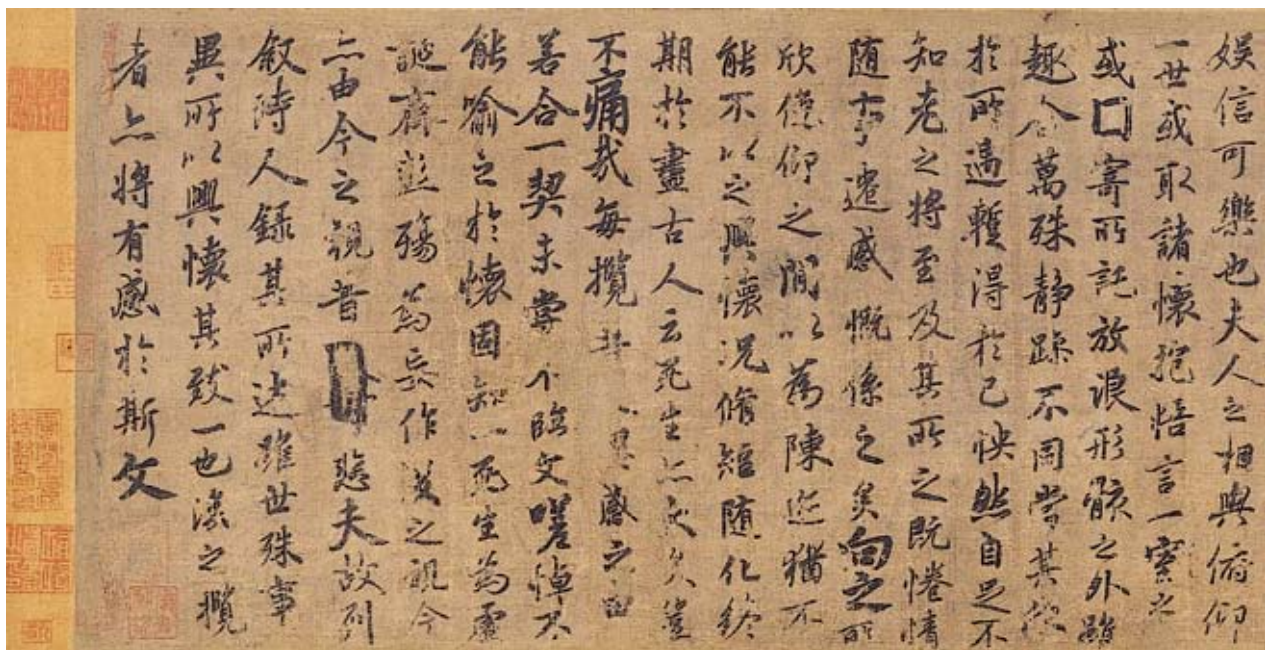 娛信可樂也夫人之相與俯仰
一世或取諸懷抱悟言一室之
或寄所託放浪形骸之外雖
趣舍萬殊静躁不同當其欣
於所遇暫得於己怏然自足不
知老之將至及其所之既惓情
随事遷感慨係之矣向之所
欣俛仰之閒以為陳迹猶不
能不以之興懷况脩短随化終
期於盡古人云死生亦大矣豈
不痛哉每攬昔興感之由
若合一契未嘗不臨文嗟悼不
能喻之於懷固知一死生為虛
誕齊彭殤為妄作後之視今
亦由今之視昔悲夫故列
叙時人録其所述雖世殊事
異所以興懷其致一也後之攬
者亦將有感於斯文